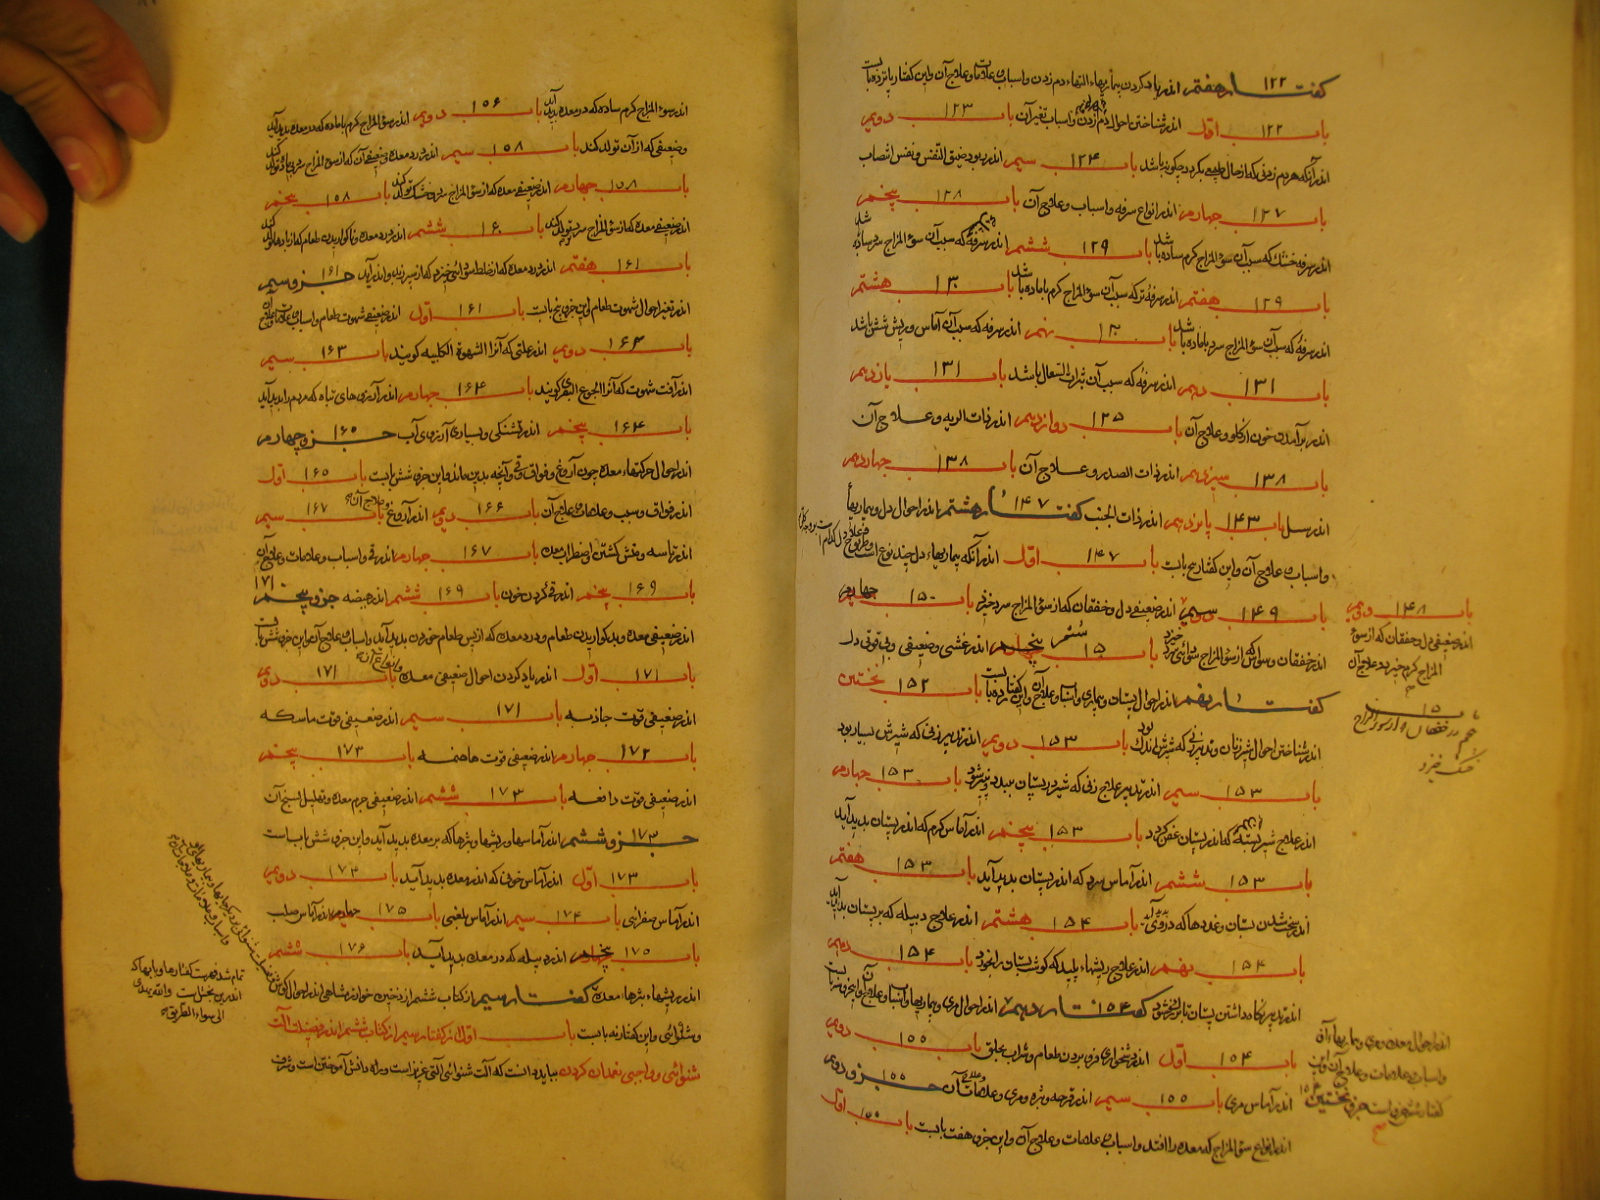 کفتار هفتم ۱۲۲ اندر یاد کردن بیماریهاء التهاء دم زدن و اسباب و علامات و علاج آن و این کفتار پانزده باب است
باب ۱۲۲ اول اندر شناختن احوال دم زدن و اسباب تغیر آن باب ۱۲۳ دویم
اندر آنکه هر دم زدنی که از حال طبیعی بکردد چکونه باشد باب ۱۲۴ سیم اندر ربو و ضیق النفس و نفس انتصاب
باب ۱۲۷ چهارم اندر انواع سرفه و اسباب و علاج آن باب ۱۲۸ پنجم
اندر سرفه خشک که سبب آن سوء المزاج کرم ساده باشد باب ۱۲۹ ششم اندر سرفه که سبب آن سوء المزاج سرد ساده باشد
باب ۱۲۹ هفتم اندر سرفه تر که سبب آن سوء المزاج کرم با ماده باشد باب ۱۳۰ هشتم
اندر سرفه که سبب آن سوء المزاج سرد با ماده باشد باب ۱۳۰ نهم اندر سرفه که سبب آن آماس و ریش شش باشد
باب ۱۳۱ دهم اندر سرفه که سبب آن باشد باب ۱۳۱ یازدهم
اندر برآمدن خون از کلو و علاج آن باب ۱۳۵ دوازدهم اندر ذات الریه و علاج آن
باب ۱۳۸ سیزدهم اندر ذات الصدر و علاج آن باب ۱۳۸ چهاردهم
اندر سل باب ۱۴۳ پانزدهم اندر ذات الجنب کفتار هشتم ۱۴۷ اندر احوال دل و بیماریهاء
و اسباب و علاج آن و این کفتار پنج بابست باب ۱۴۷ اول اندر آنکه بیماریهاء دل چند نوع است
باب ۱۴۹ سیم اندر ضعیفی دل و خفقان که از سوء المزاج سرد خیزد باب ۱۵۰ چهارم
باب ۱۴۸ دویم
اندر ضعیفی دل و خفقان که از سوء
المزاج کرم خیزد و علاج آن
اندر خفقان و وسواس که از سوء المزاج سودائی خیزد باب ۱۵ پنجم اندر غشی و ضعیفی و بی قوتی دل
باب ۱۵
پنجم در خفقان که از سوء المزاج
خشک خیزد
کفتار نهم اندر احوال پستان و بیماری و اسباب و علاج آن و این کفتار ده بابست باب ۱۵۲ نخستین
اندر شناختن احوال شیر زنان و تدبیر زنی که شیرش اندک بود باب ۱۵۳ دویم اندر تدبیر زنی که شیرش بسیار بود
باب ۱۵۳ سیم اندر تدبیر علاج زنی که شیر در پستان ببندد و پنیر شود باب ۱۵۳ چهارم
اندر علاج شیر بسته که اندر پستان عفن کردد باب ۱۵۳ پنجم اندر آماس کرم که اندر پستان بدید آید
باب ۱۵۳ ششم اندر آماس سرد که اندر پستان بدید آید باب ۱۵۳ هفتم
اندر سخت شدن پستان و غددها که در وی بدید آید باب ۱۵۴ هشتم اندر علاج دبیله که بر پستان بدید آید
باب ۱۵۴ نهم اندر علاج ریشهاء پلید که کوشت پستان را بخورد باب ۱۵۴ دهم
اندر تدبیر نکاه داشتن پستان تا بزرک نشود کفتار دهم ۱۵۴ اندر احوال مری و بیماریها و اسباب و علاج آن
اندر احوال معده و مری و بیماریهاء آن
و اسباب و علامات و علاج آن و این
باب ۱۵۴ اول اندر دشخواری فرو بردن طعام و شراب بحلق باب ۱۵۵ دویم
اندر آماس مری باب ۱۵۵ سیم اندر قرحه و بثره و مری و علامات آن جزو دویم ۱۵۵
اندر انواع سوء المزاج که معده را افتد و اسباب و علامات و علاج آن و این جزو هفت بابست باب ۱۵۵ اول
اندر سوء المزاج کرم ساده که در معده بدید آید باب ۱۵۶ دویم اندر سوء المزاج کرم با ماده که در معده بدید آید
و ضعیفی که از آن تولد کند باب ۱۵۸ سیم اندر درد معده و ضعیفی آن که از سوء المزاج سرد با ماده تولد کند
باب ۱۵۸ چهارم اندر ضعیفی معده که از سوء المزاج سرد و خشک تولد کند باب ۱۵۸ پنجم
اندر ضعیفی معده که از سوء المزاج سرد و تر تولد کند باب ۱۶۰ ششم اندر درد معده و ناکواریدن طعام که از بادها تولد کند
باب ۱۶۱ هفتم اندر درد معده که از خلط سودائی خیزد که از سپرز بدو اندر آید جزو سیم ۱۶۱
اندر تغیر احوال شهوت طعام و این جزو پنج بابست باب ۱۶۱ اول اندر ضعیفی شهوت طعام و اسباب و علامات و علاج آن
باب ۱۶۳ دویم اندر علتی که آنرا الشهوة الکلبیه کویند باب ۱۶۳ سیم
اندر آفت شهوت که آنرا الجوع البقری کویند باب ۱۶۴ چهارم اندر آرزوی های تباه که مردم را بدید آید
باب ۱۶۴ پنجم اندر تشنکی و بسیاری آرزوی آب جزو چهارم ۱۶۵
اندر احوال حرکتهاء معده چون آروغ و فواق و قی و آنچه بدین ماند و این جزو شش بابست باب ۱۶۵ اول
اندر فواق و سبب و علامات و علاج آن باب ۱۶۶ دویم اندر آروغ و علاج آن باب ۱۶۷ سیم
اندر تاسه و منش کشتن و اضطراب معده باب ۱۶۷ چهارم اندر قی و اسباب و علامات و علاج آن
باب ۱۶۹ پنجم اندر قی کردن خون باب ۱۶۹ ششم اندر هیضه جزو پنجم ۱۷۱
اندر ضعیفی معده و بد کواریدن طعام و درد معده که از پس طعام خوردن بدید آید و اسباب و علاج آن و این جزو شش بابست
باب ۱۷۱ اول اندر یاد کردن احوال ضعیفی معده و انواع آن باب ۱۷۱ دویم
اندر ضعیفی قوت جاذبه باب ۱۷۱ سیم اندر ضعیفی قوت ماسکه
باب ۱۷۲ چهارم اندر ضعیفی قوت هاضمه باب ۱۷۳ پنجم
اندر ضعیفی قوت دافعه باب ۱۷۳ ششم اندر ضعیفی جرم معده و تهلیل نسج آن
جزو ششم ۱۷۳ اندر آماسها و ریشها و بثرها که بر معده بدید آید و این جزو شش بابست
باب ۱۷۳ اول اندر آماس خونی که اندر معده بدید آید باب ۱۷۴ دویم
اندر آماس صفرائی باب ۱۷۴ سیم اندر آماس بلغمی باب ۱۷۵ چهارم اندر آماس صلب
باب ۱۷۵ پنجم اندر دبیله که در معده بدید آید باب ۱۷۶ ششم
اندر ریشهاء و بثرها معده کفتار سیم از کتاب ششم از ذخیره خوارزمشاهی اندر احوال کوش
و شنوائی و این کفتار نه بابست باب اول از کفتار سیم از کتاب ششم اندر فضیلت آلت
شنوائی و واجبی تعهد آن کردن بباید دانست که آلت شنوائی آلتی عزیز است و راه دانش آموختن است و شرف
تمام شد فهرست کفتارها و بابها که
اندرین بخش است والله یهدی
الی سواء الطریق